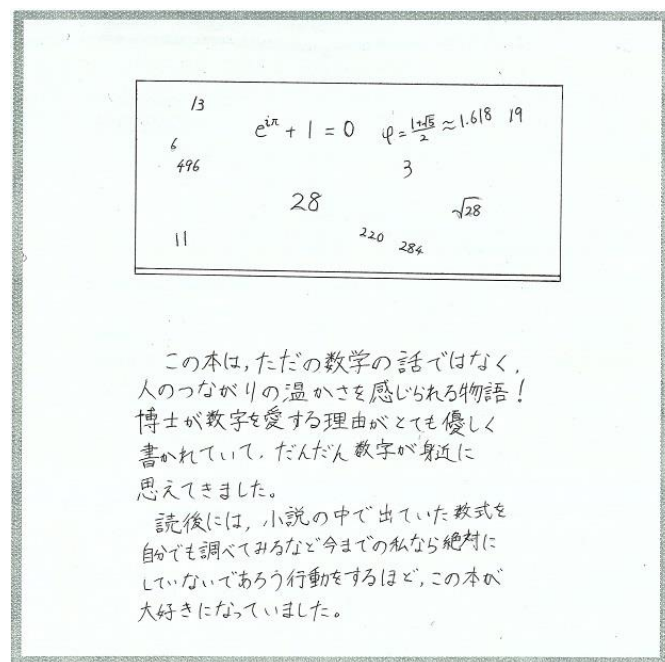 13
e^{iπ} + 1 = 0 φ = \frac{1+√5}{2} ≈ 1.618 19
6
496
3
28
√28
11
220
284
この本は,ただの数学の話ではなく,
人のつながりの温かさを感じられる物語!
博士が数字を愛する理由がとても優しく
書かれていて,だんだん数字が身近に
思えてきました。
読後には,小説の中で出ていた数式を
自分でも調べてみるなど今までの私なら絶対に
していないであろう行動をするほど,この本が
大好きになっていました。